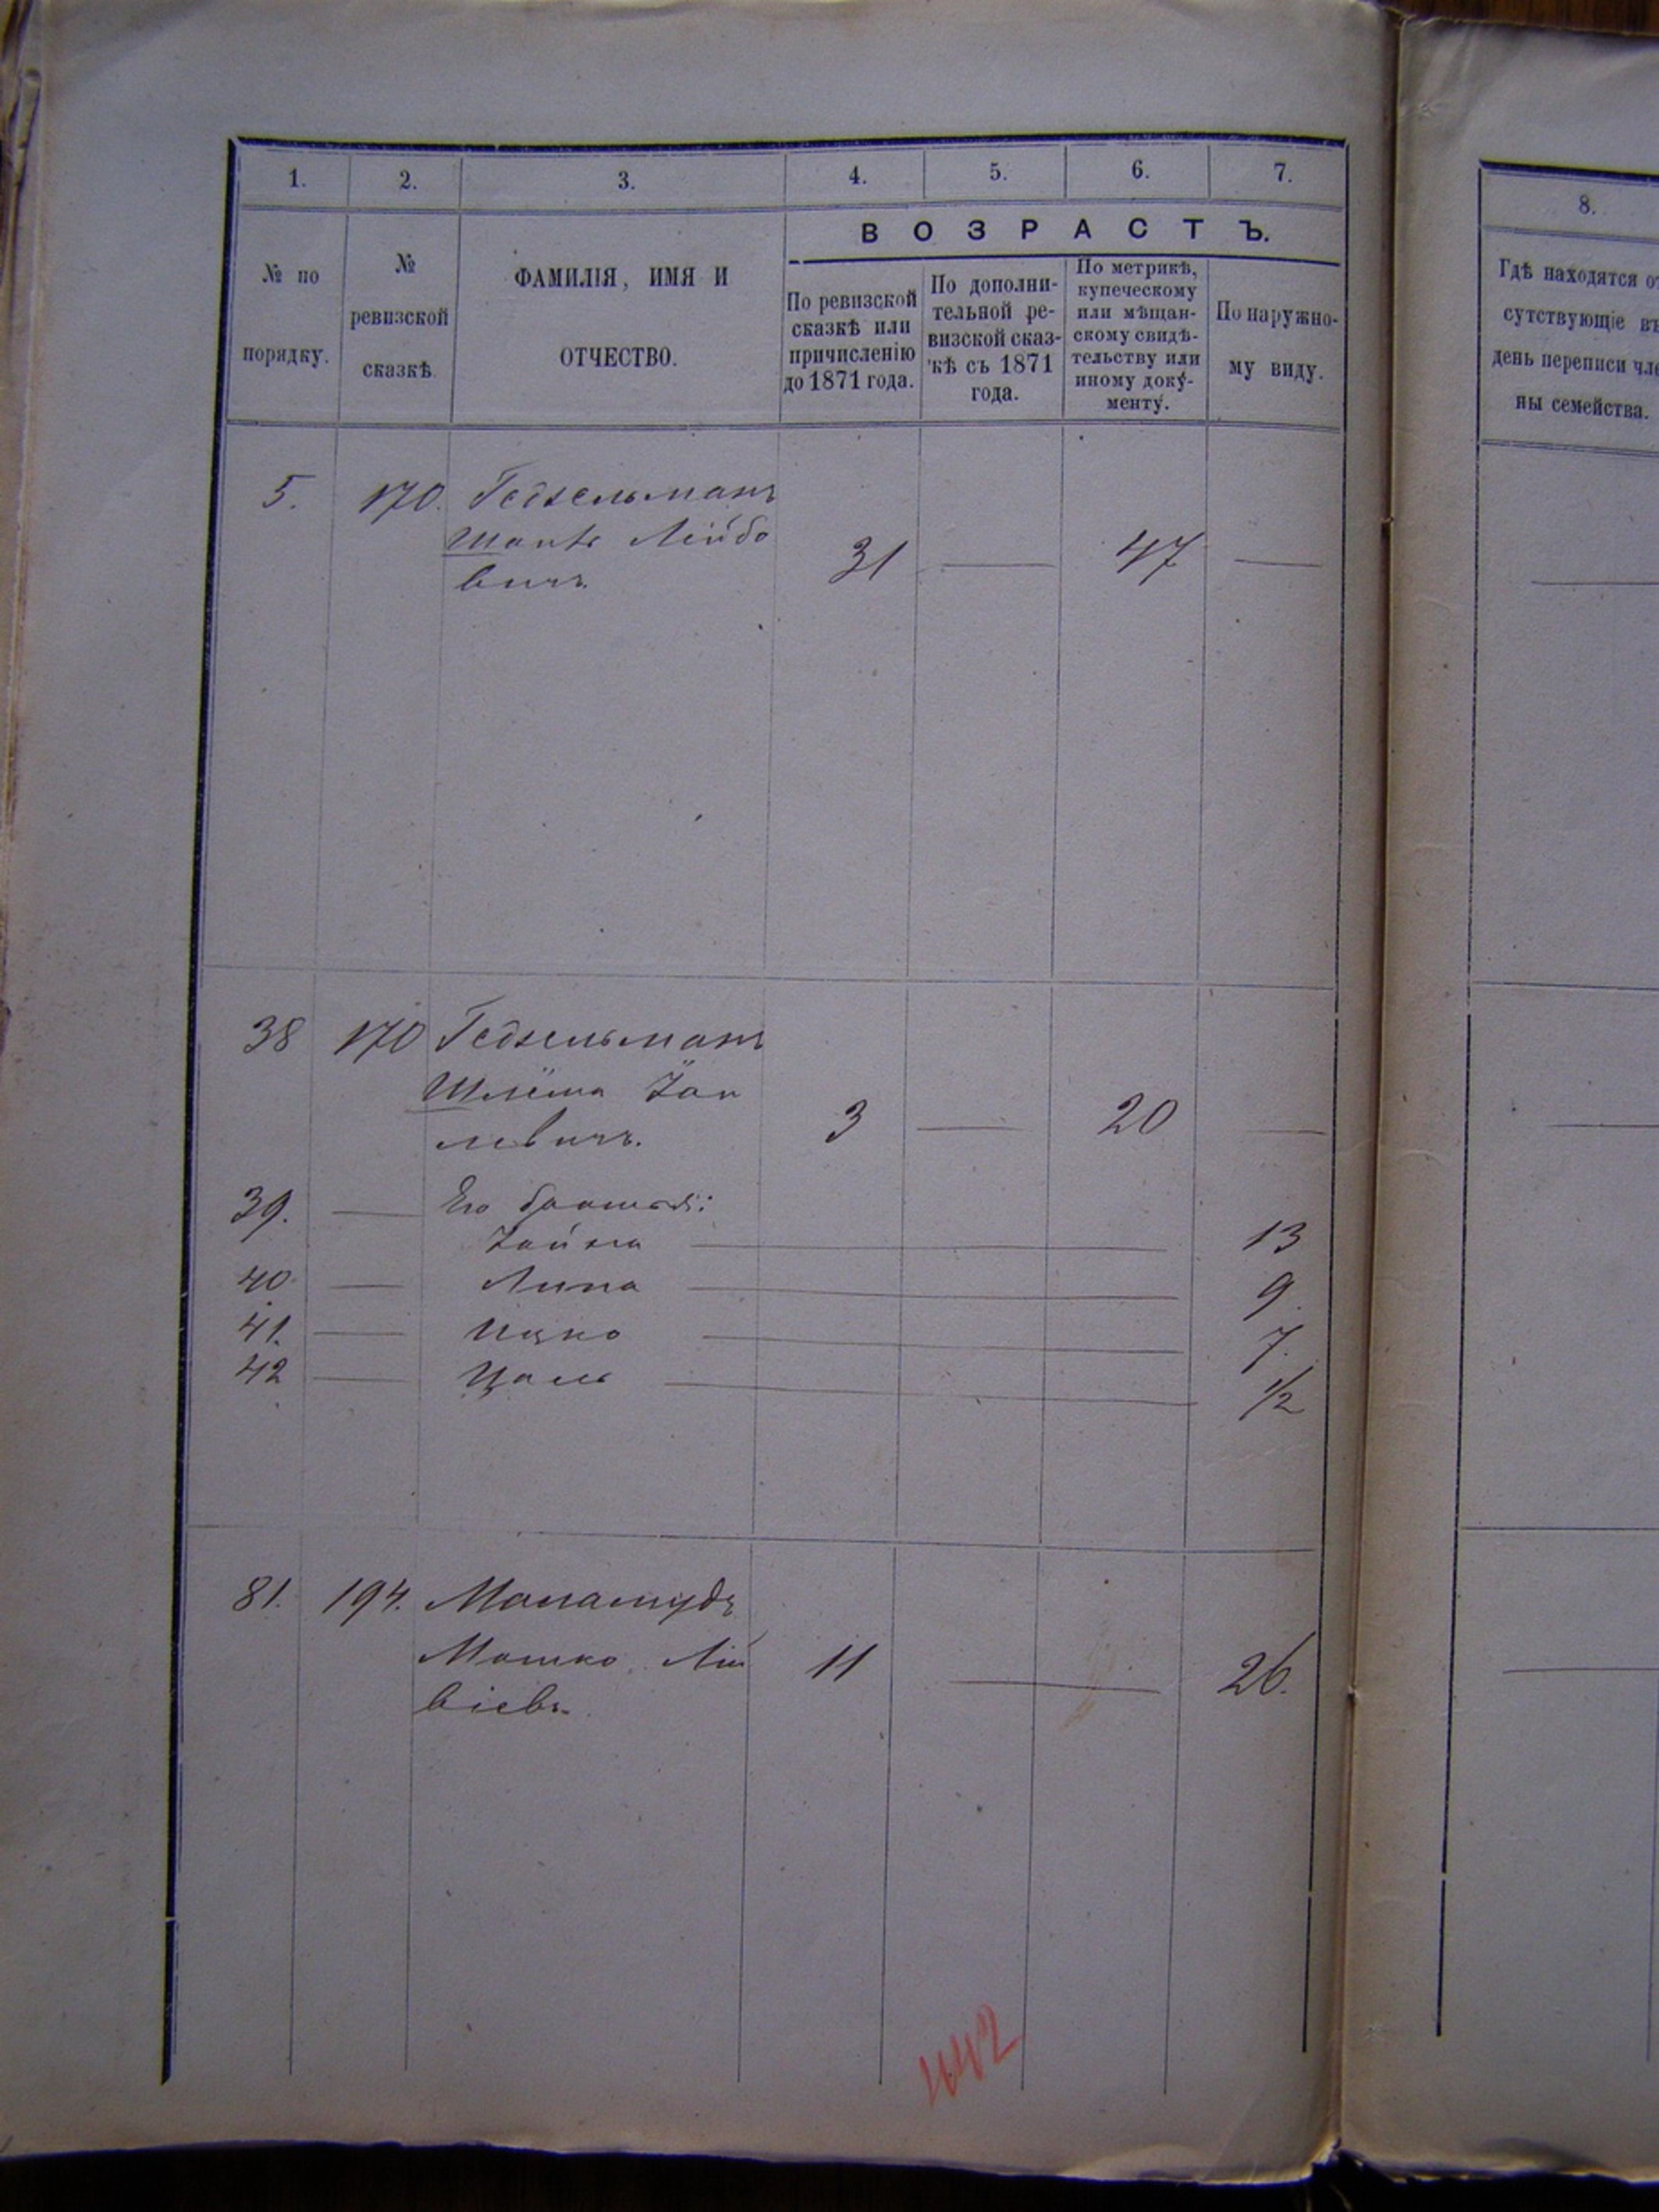 1. 2. 3. 4. 5. 6. 7.
ВОЗРАСТЪ.
№ по порядку.
№ ревизской сказкѣ.
ФАМИЛІЯ, ИМЯ И ОТЧЕСТВО.
По ревизской сказкѣ или причисленію до 1871 года.
По дополни-
тельной ре-
визской сказ-
кѣ съ 1871
года.
По метрикѣ,
купеческому
или мѣщан-
скому свидѣ-
тельству или
иному доку-
менту.
По наружно-
му виду.
5. 170. Гедзельманъ
Лейбо
вичъ. 31 — 47 —
38 170 Гедзельманъ
Шлёма
левичъ. 3 — 20 —
39. — Его братья:
13
40 — Липа — 9.
41. — Ицко — 7.
42 — Цаль — 1/2
81. 194. Маламудъ
Мошко Лей 11 — 26.
віевъ.
442
8.
Гдѣ находятся от
сутствующіе въ
день переписи чле
ны семейства.